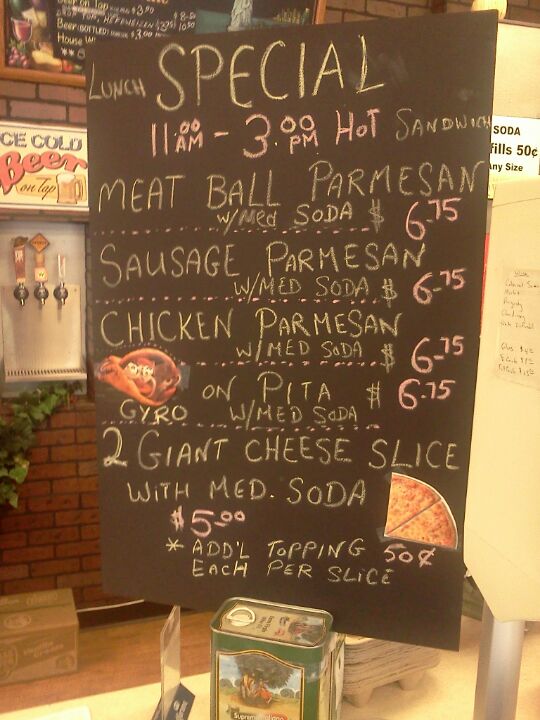 Beer on Tap
Beer (BOTTLED)
House
LUNCH SPECIAL
11:00 AM - 3:00 PM HOT SANDWICH
MEAT BALL PARMESAN
W/Med SODA $ 6.75
SAUSAGE PARMESAN
W/MED SODA $ 6.75
CHICKEN PARMESAN
W/MED SODA $ 6.75
GYRO ON PITA $ 6.75
W/MED SODA
2 GIANT CHEESE SLICE
WITH MED. SODA
$5.00
* ADD'L TOPPING 50¢
EACH PER SLICE
ICE COLD
Beer
on Tap
SODA
fills 50¢
ny Size